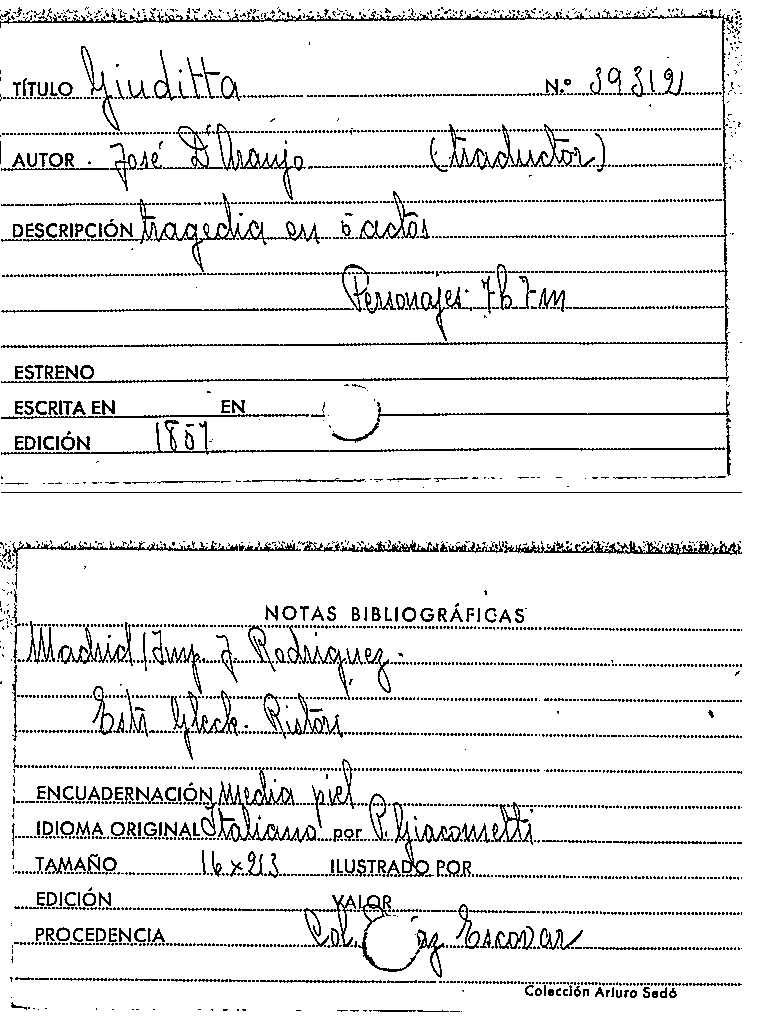 TÍTULO Giuditta N.º 39312
AUTOR. José D'Araujo (traductor)
DESCRIPCIÓN tragedia en 5 actos
Personajes: 7h 7m
ESTRENO
ESCRITA EN EN
EDICIÓN 1857
NOTAS BIBLIOGRÁFICAS
Madrid/Imp. J. Rodriguez.
Ristori
ENCUADERNACIÓN media piel
IDIOMA ORIGINAL Italiano por P. Giacometti
TAMAÑO 16x213 ILUSTRADO POR
EDICIÓN VALOR
PROCEDENCIA Col. az Escovar
Colección Arturo Sedó